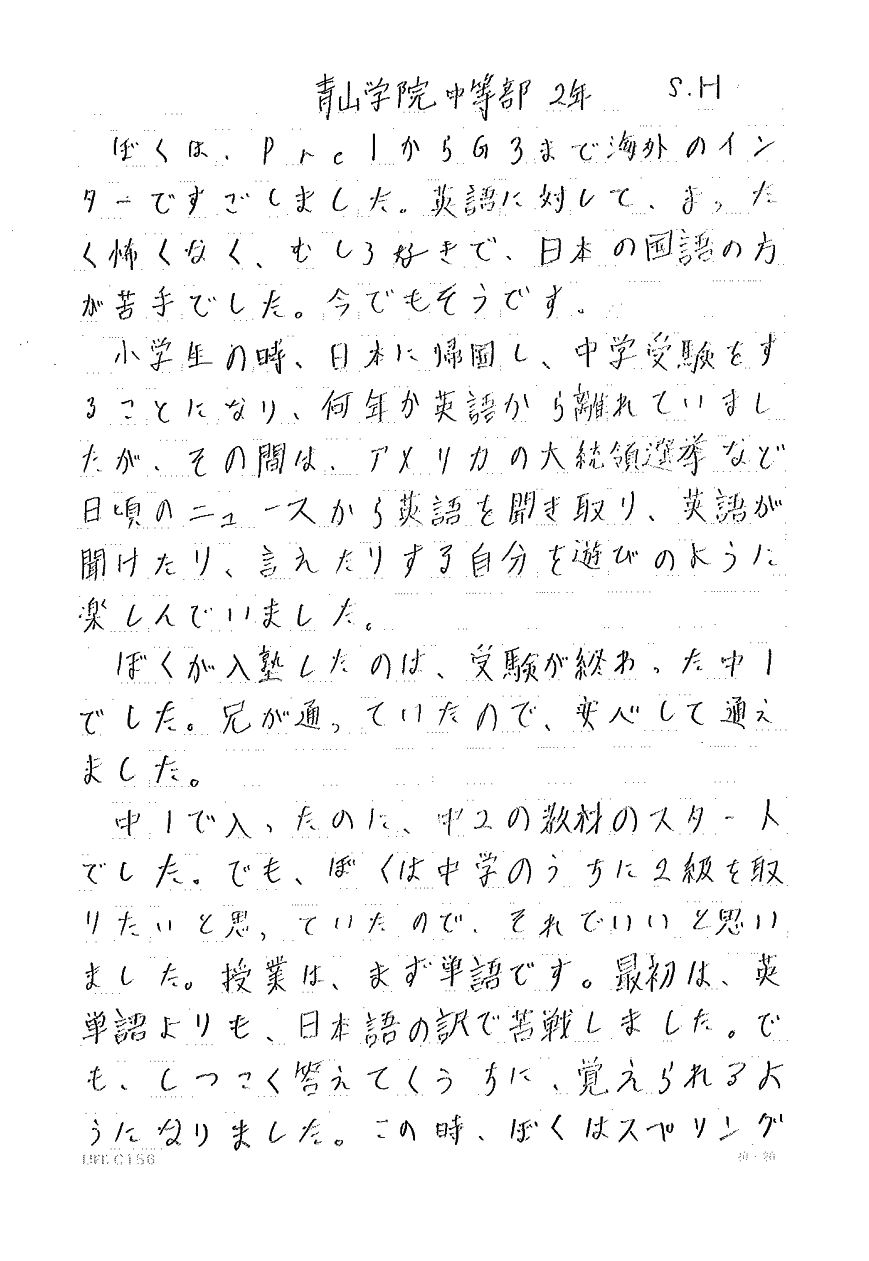 青山学院中等部 2年 S.H
ぼくは、PrelからG3まで海外のイン
ターですごしました。英語に対して、まった
く怖くなく、むしろ好きで、日本の国語の方
が苦手でした。今でもそうです。
小学生の時、日本に帰国し、中学受験をす
ることになり、何年か英語から離れていまし
たが、その間は、アメリカの大統領選挙など
日頃のニュースから英語を聞き取り、英語が
聞けたり、言えたりする自分を遊びのように
楽しんでいました。
ぼくが入塾したのは、受験が終わった中1
でした。兄が通っていたので、安心して通え
ました。
中1で入ったのに、中2の教材のスタート
でした。でも、ぼくは中学のうちに2級を取
りたいと思っていたので、それでいいと思い
ました。授業は、まず単語です。最初は、英
単語よりも、日本語の訳で苦戦しました。で
も、しつこく答えてくうちに、覚えられるよ
うになりました。この時、ぼくはスペリング
LIFE C156 20×20